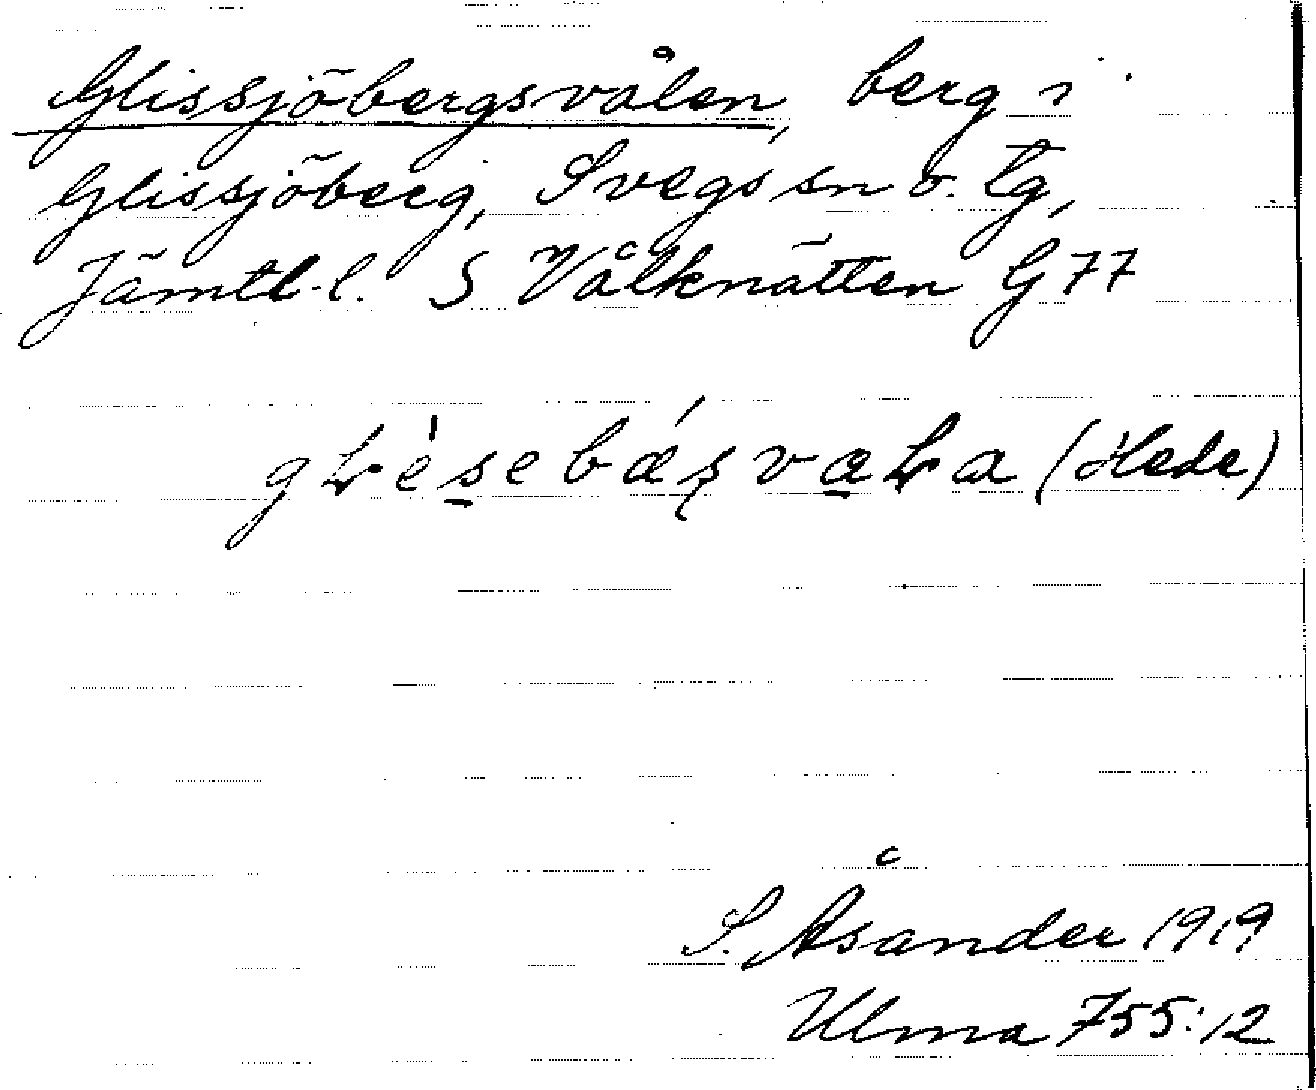 Glissjöbergsvålen, berg i
Glissjöberg, Svegs sn o. tg,
Jämtl. l. S Vålknätten G 77
(Hede)
S. Åsander 1919
Ulma 755:12